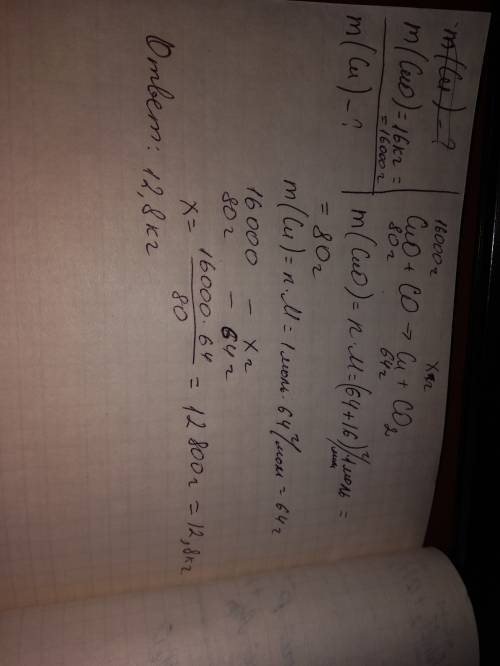 m(Cu) - ?
m(CuO) = 16кг =
= 16000г
m(Cu) - ?
16000г xг
CuO + CO → Cu + CO2
80г 64г
m(CuO) = n·M = (64+16) г/моль · 1 моль =
= 80г
m(Cu) = n·M = 1 моль · 64 г/моль = 64г
16000 - xг
80г - 64г
x = 16000·64 / 80 = 12800г = 12,8кг
Ответ: 12,8 кг